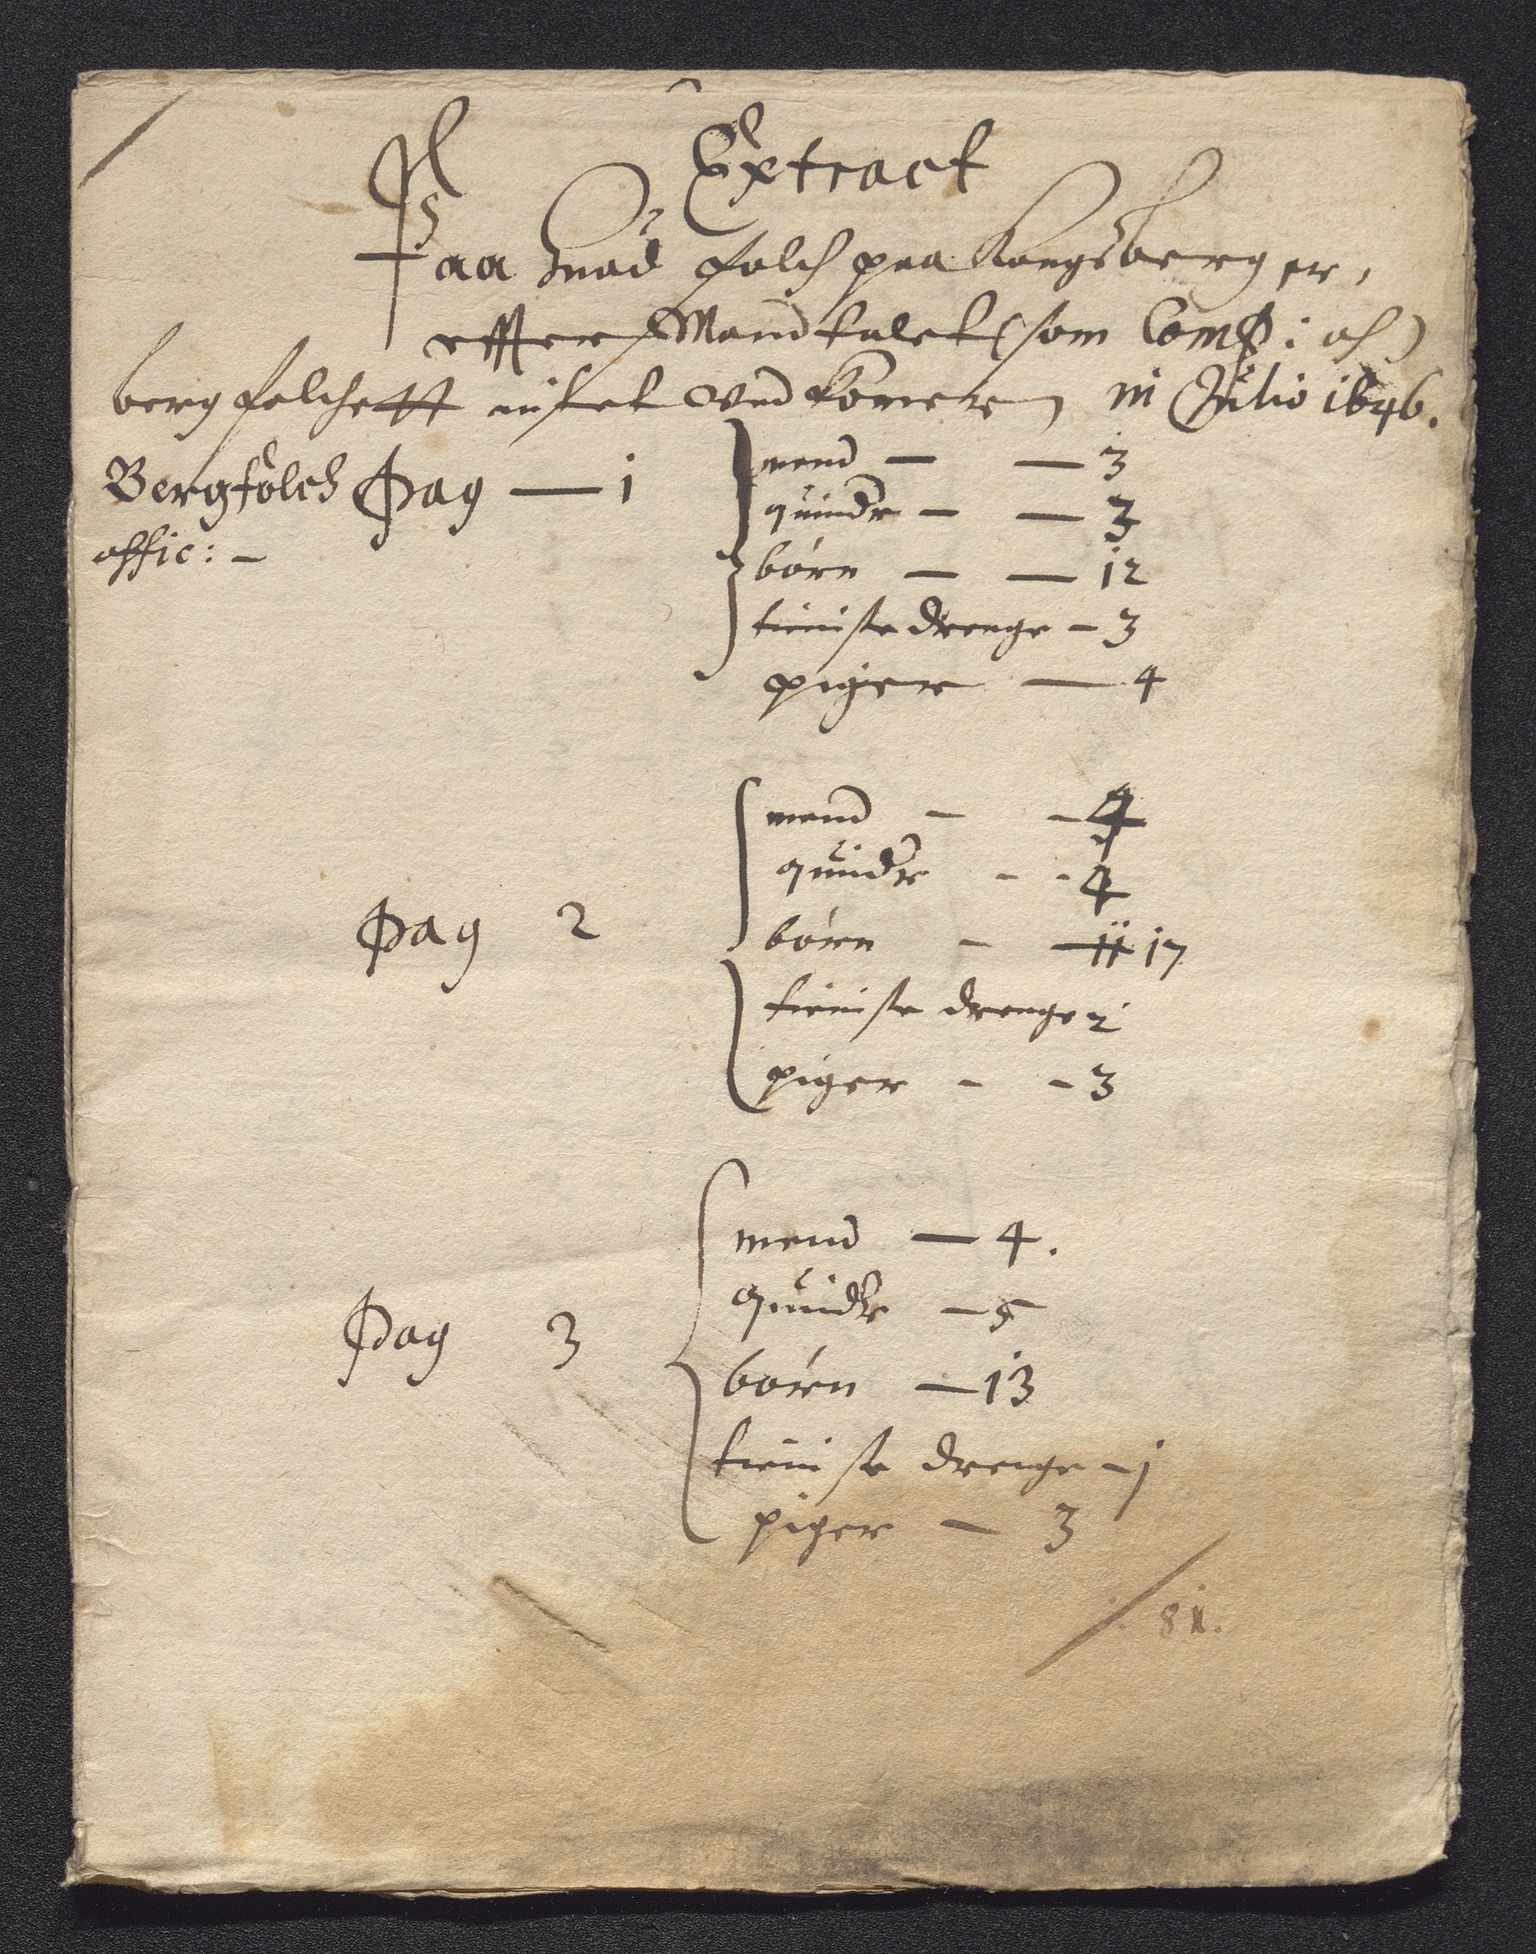 Extract
Paa huad folch paa Kongsberg er,
effter Mandtalet (som Comp: och
bergfolchett intet vedkommer) in Julio 1646.
Bergfolch Pag — 1
offic: —
mend — — 3
quinder — — 3
börn — — 12
tieniste drenge — 3
piger — 4
Pag 2
mend — — 4
quinder — — 4
börn — — 11 17
tieniste drenge 2
piger — — 3
Pag 3
mend — 4.
quinder — 5
börn — 13
tieniste drenge — 1
piger — 3